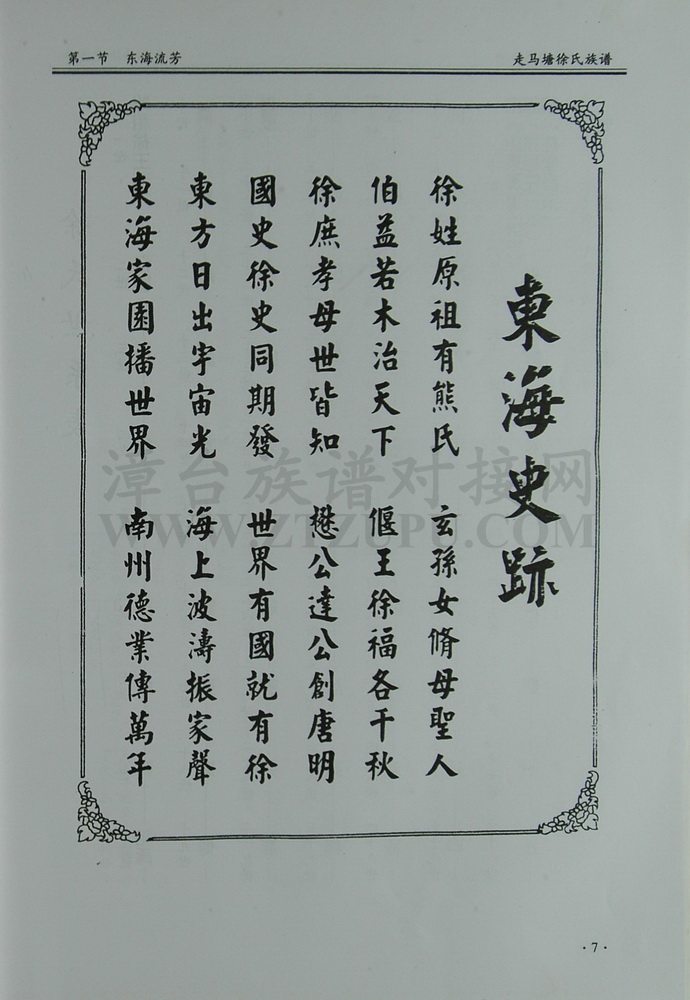 第一节 东海流芳
走马塘徐氏族谱
東海史跡
徐姓原祖有熊氏 玄孫女脩母聖人
伯益若木治天下 偃王徐福各千秋
徐庶孝母世皆知 懋公達公創唐明
國史徐史同期發 世界有國就有徐
東方日出宇宙光 海上波濤振家聲
東海家園播世界 南州德業傳萬年
漳台族谱对接网
WWW.ZTZUPU.COM
·7·